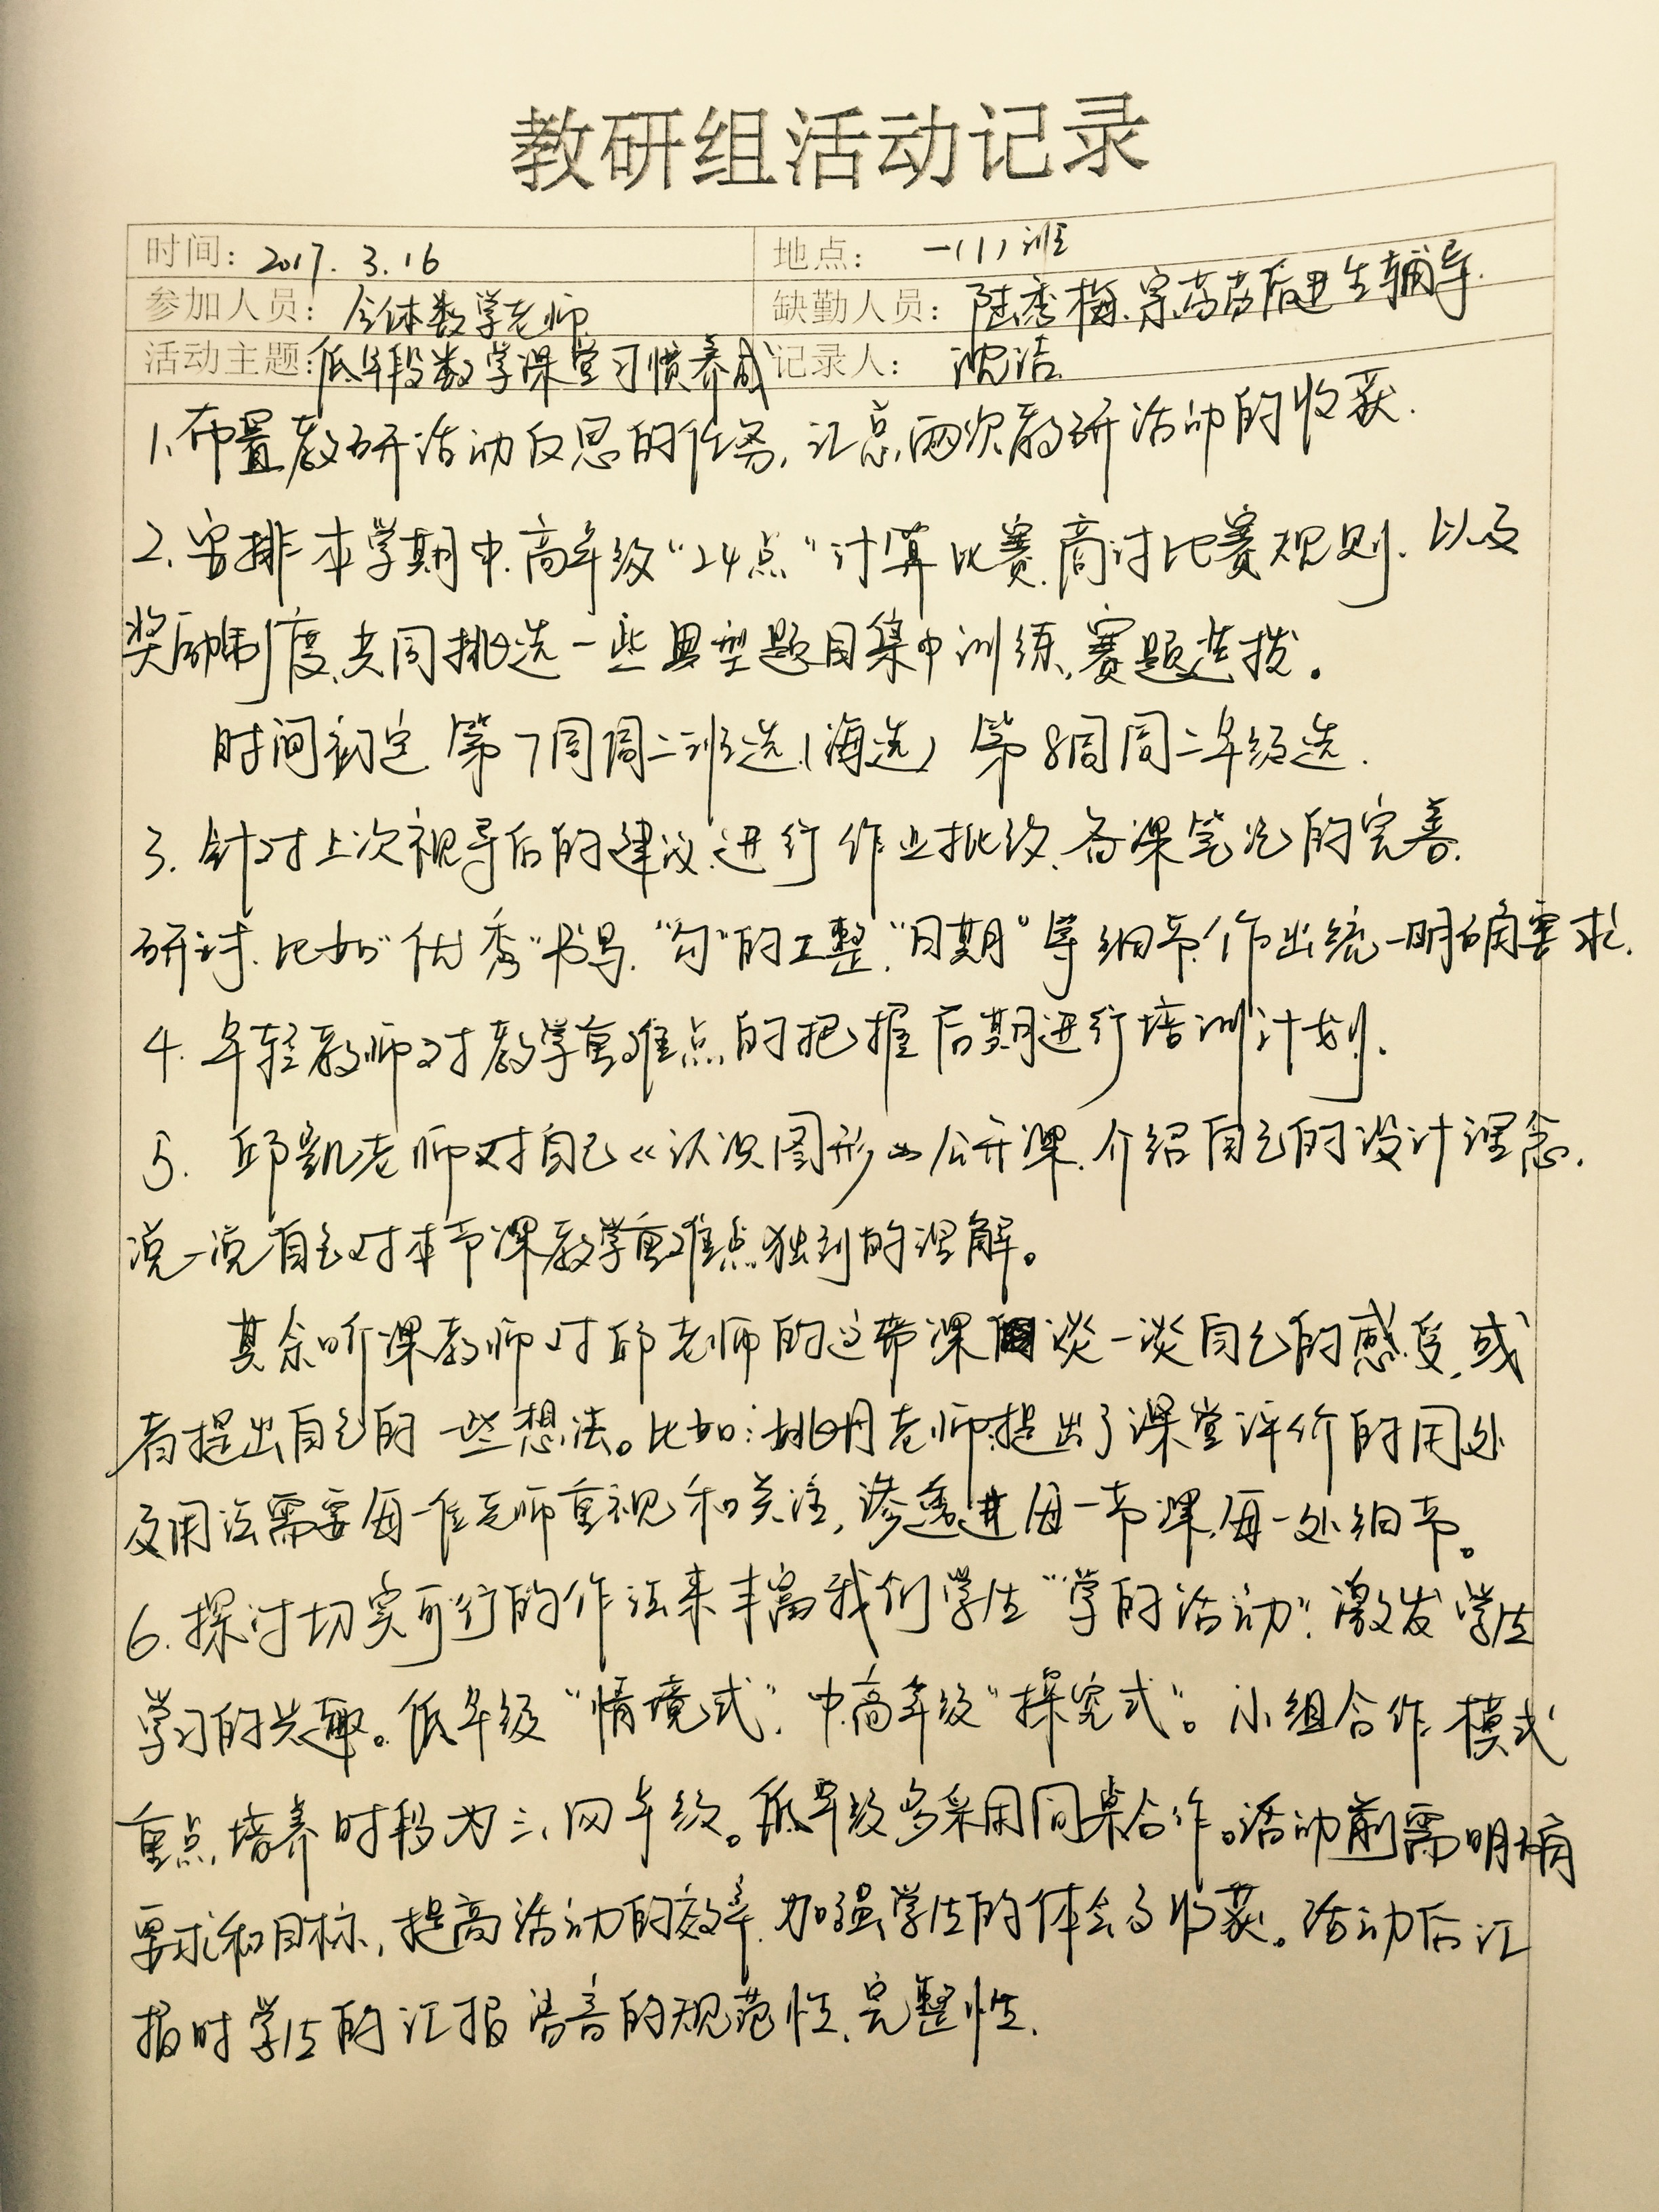 教研组活动记录
时间: 2017. 3. 16 地点: 一(1)班
参加人员: 全体数学老师 缺勤人员: 陆秀梅、宗苗苗后进生辅导.
活动主题: 低年段数学课堂习惯养成 记录人: 沈洁
1、布置教研活动反思的任务, 汇总两次教研活动的收获.
2、安排本学期中、高年级“24点”计算比赛, 商讨比赛规则、以及
奖励制度、共同挑选一些典型题目集中训练, 赛题选拔。
时间初定 第7周周二班选(海选) 第8周周二年级选.
3. 针对上次视导后的建议, 进行作业批改、备课笔记的完善.
研讨. 比如“优秀”书写, “勾”的工整, “日期”等细节, 作出统一明确要求.
4. 年轻教师对教学重难点的把握后期进行培训计划.
5. 邱凯老师对自己《认识图形》公开课, 介绍自己的设计理念.
说一说自己对本节课教学重难点独到的理解。
其余听课教师对邱老师的这节课谈一谈自己的感受, 或
者提出自己的一些想法。比如: 姚明老师提出了课堂评价的用处
及用法需要每一位老师重视和关注, 渗透进每一节课, 每一处细节。
6. 探讨切实可行的作法来丰富我们学生“学的活动”. 激发学生
学习的兴趣。低年级“情境式”, 中、高年级“探究式”。小组合作模式
重点培养时段为三、四年级。低年级多采用同桌合作。活动前需明确
要求和目标, 提高活动的效率, 加强学生的体会与收获。活动后汇
报时学生的汇报语言的规范性、完整性.